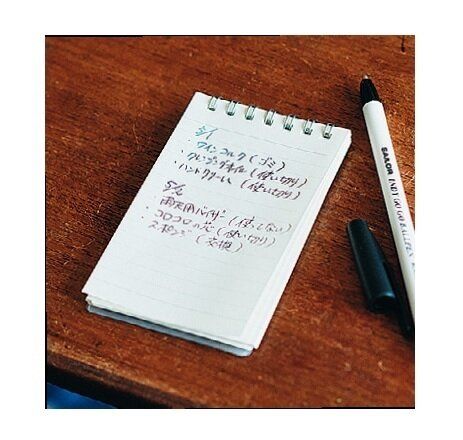 5/1
・ワインコルク(ゴミ)
・クレンジングオイル(使い切り)
・ハンドクリーム(使い切り)
5/2
・雨天用バイザー(使ってない)
・コロコロの芯(使い切り)
・スポンジ(交換)
SAILOR